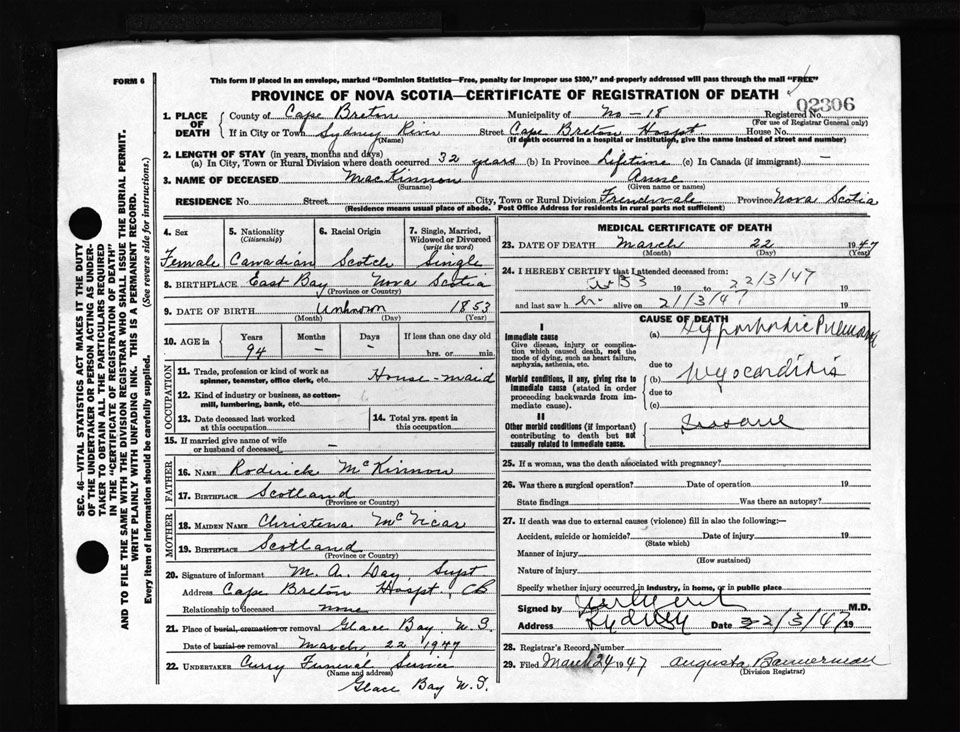 FORM 6
This form if placed in an envelope, marked "Dominion Statistics—Free, penalty for improper use $300," and properly addressed will pass through the mail "FREE"
PROVINCE OF NOVA SCOTIA—CERTIFICATE OF REGISTRATION OF DEATH
02306
1. PLACE OF DEATH
County of Cape Breton Municipality of No-18 Registered No.
(For use of Registrar General only)
If in City or Town Sydney River Street Cape Breton Hospt. House No.
(Name) (If death occurred in a hospital or institution, give the name instead of street and number)
2. LENGTH OF STAY (in years, months and days)
(a) In City, Town or Rural Division where death occurred 32 years (b) In Province Lifetime (c) In Canada (if immigrant) —
3. NAME OF DECEASED MacKinnon Anne
(Surname) (Given name or names)
RESIDENCE No. Street City, Town or Rural Division Frenchvale Province Nova Scotia
(Residence means usual place of abode. Post Office Address for residents in rural parts not sufficient)
4. Sex 5. Nationality (Citizenship) 6. Racial Origin 7. Single, Married, Widowed or Divorced (write the word)
Female Canadian Scotch Single
8. BIRTHPLACE East Bay Nova Scotia
(Province or Country)
9. DATE OF BIRTH Unknown 1853
(Month) (Day) (Year)
10. AGE in Years Months Days If less than one day old
94 — — hrs. or min.
OCCUPATION
11. Trade, profession or kind of work as spinner, teamster, office clerk, etc. House-maid
12. Kind of industry or business, as cotton-mill, lumbering, bank, etc.
13. Date deceased last worked at this occupation
14. Total yrs. spent in this occupation
15. If married give name of wife or husband of deceased —
FATHER
16. NAME Roderick McKinnon
17. BIRTHPLACE Scotland
(Province or Country)
MOTHER
18. MAIDEN NAME Christena McVicar
19. BIRTHPLACE Scotland
(Province or Country)
20. Signature of informant M. A. Day, Supt
Address Cape Breton Hospt., CB
Relationship to deceased none
21. Place of burial, cremation or removal Glace Bay N.S.
Date of burial or removal March, 22, 1947
22. UNDERTAKER Curry Funeral Service
(Name and address)
Glace Bay N.S.
MEDICAL CERTIFICATE OF DEATH
23. DATE OF DEATH March 22 1947
(Month) (Day) (Year)
24. I HEREBY CERTIFY that I attended deceased from:
19 to 22/3/47 19
and last saw h er alive on 21/3/47 19
CAUSE OF DEATH
I
Immediate cause
Give disease, injury or complication which caused death, not the mode of dying, such as heart failure, asphyxia, asthenia, etc.
(a) Hypostatic Pneumonia
due to
Morbid conditions, if any, giving rise to immediate cause (stated in order proceeding backwards from immediate cause).
(b) Myocarditis
due to
(c)
II
Other morbid conditions (if important) contributing to death but not causally related to immediate cause.
Insane
25. If a woman, was the death associated with pregnancy?
26. Was there a surgical operation? Date of operation 19
State findings Was there an autopsy?
27. If death was due to external causes (violence) fill in also the following:—
Accident, suicide or homicide? Date of injury 19
(State which)
Manner of injury
(How sustained)
Nature of injury
Specify whether injury occurred in industry, in home, or in public place
Signed by M.D.
Address Sydney Date 22/3/47 19
28. Registrar's Record Number
29. Filed March 24 1947 Augusta Bannerman
(Division Registrar)
SEC. 46—VITAL STATISTICS ACT MAKES IT THE DUTY
OF THE UNDERTAKER OR PERSON ACTING AS UNDER-
TAKER TO OBTAIN ALL THE PARTICULARS REQUIRED
IN THE "CERTIFICATE OF REGISTRATION OF DEATH"
AND TO FILE THE SAME WITH THE DIVISION REGISTRAR WHO SHALL ISSUE THE BURIAL PERMIT.
WRITE PLAINLY WITH UNFADING INK. THIS IS A PERMANENT RECORD.
Every item of information should be carefully supplied. (See reverse side for instructions.)